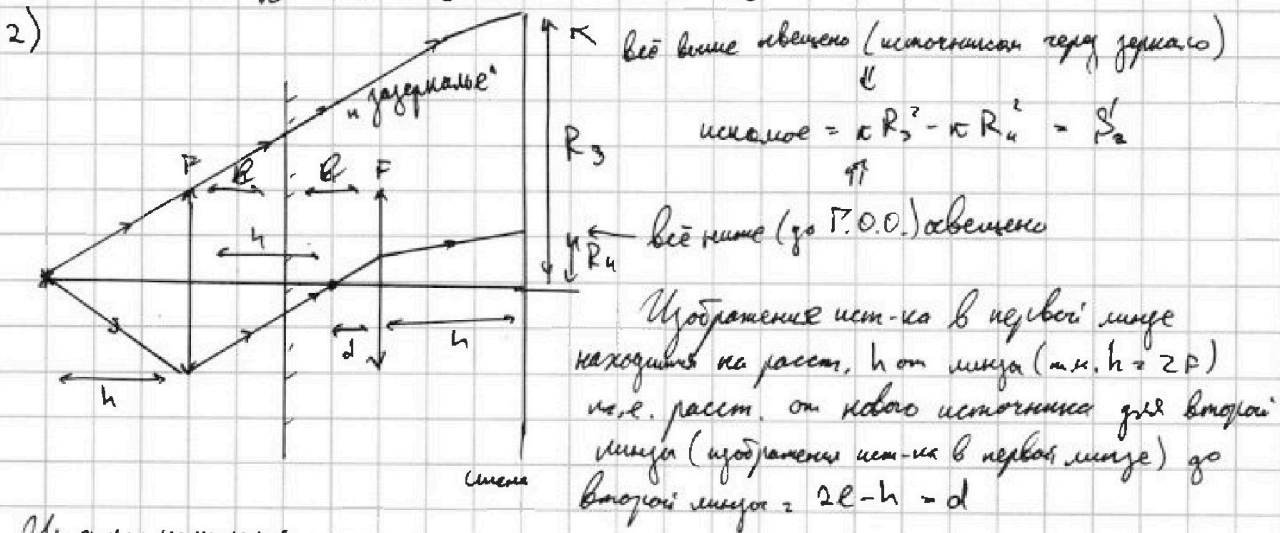 2)
"зазеркалье"
всё выше освещено (источником через зеркало)
⇓
искомое = πR₃² - πR₄² = S₂'
⇑
всё ниже (до Г.О.О.) освещено
F
F
R₃
R₄
h
d
h
h
s
стена
Изображение ист-ка в первой линзе
находится на расст. h от линзы (т.к. h = 2F)
т.е. расст. от нового источника для второй
линзы (изображения ист-ка в первой линзе) до
второй линзы = 2l - h = d